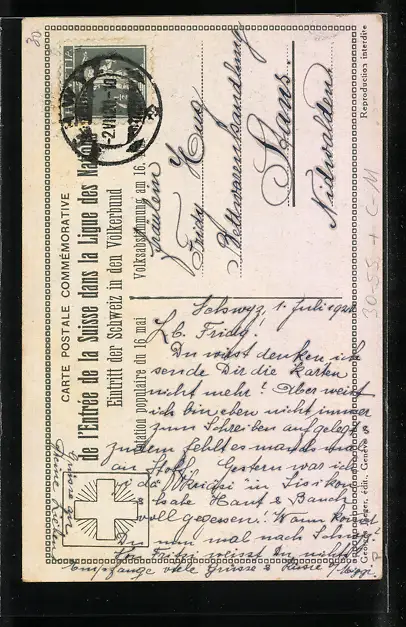 30
CARTE POSTALE COMMÉMORATIVE
de l'Entrée de la Suisse dans la Ligue des Nations
Eintritt der Schweiz in den Völkerbund
Votation populaire du 16 mai Volksabstimmung am 16.
Fräulein
Fridy Hug
Bettwarenhandlung
Stans.
Nidwalden
Reproduction interdite
édit., Genève
Schwyz, 1. Juli 1921
L.b. Fridy!
Du wirst denken ich
sende Dir die Karten
nicht mehr! Aber weist
ich bin eben nicht immer
zum Schreiben aufgelegt
zudem fehlt es manchmal
an Stoff. Gestern war ich
in Sisikon
habe Haut & Bauch
voll gegessen! Wann kommst
Du nun mal nach Schwyz?
Von Fritzi weisst Du nichts?
Empfange viele Grüsse & Küsse
30-55 + C-11